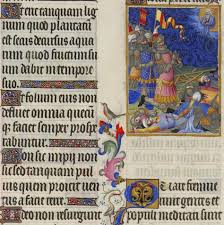 Et erit tanquam lig
num quod plantatu
est secus decursus aqua
rum quod fructum su
um dabit in tempore
suo
Et folium eius non
defluet omnia
faciet semper prospe
rabuntur
Non sic impii non
sic sed tanquam pul
uis quem proicit uen
tus a facie terre
Ideo non resurgunt
Quare fremu
erunt gentes et
populi meditati sunt